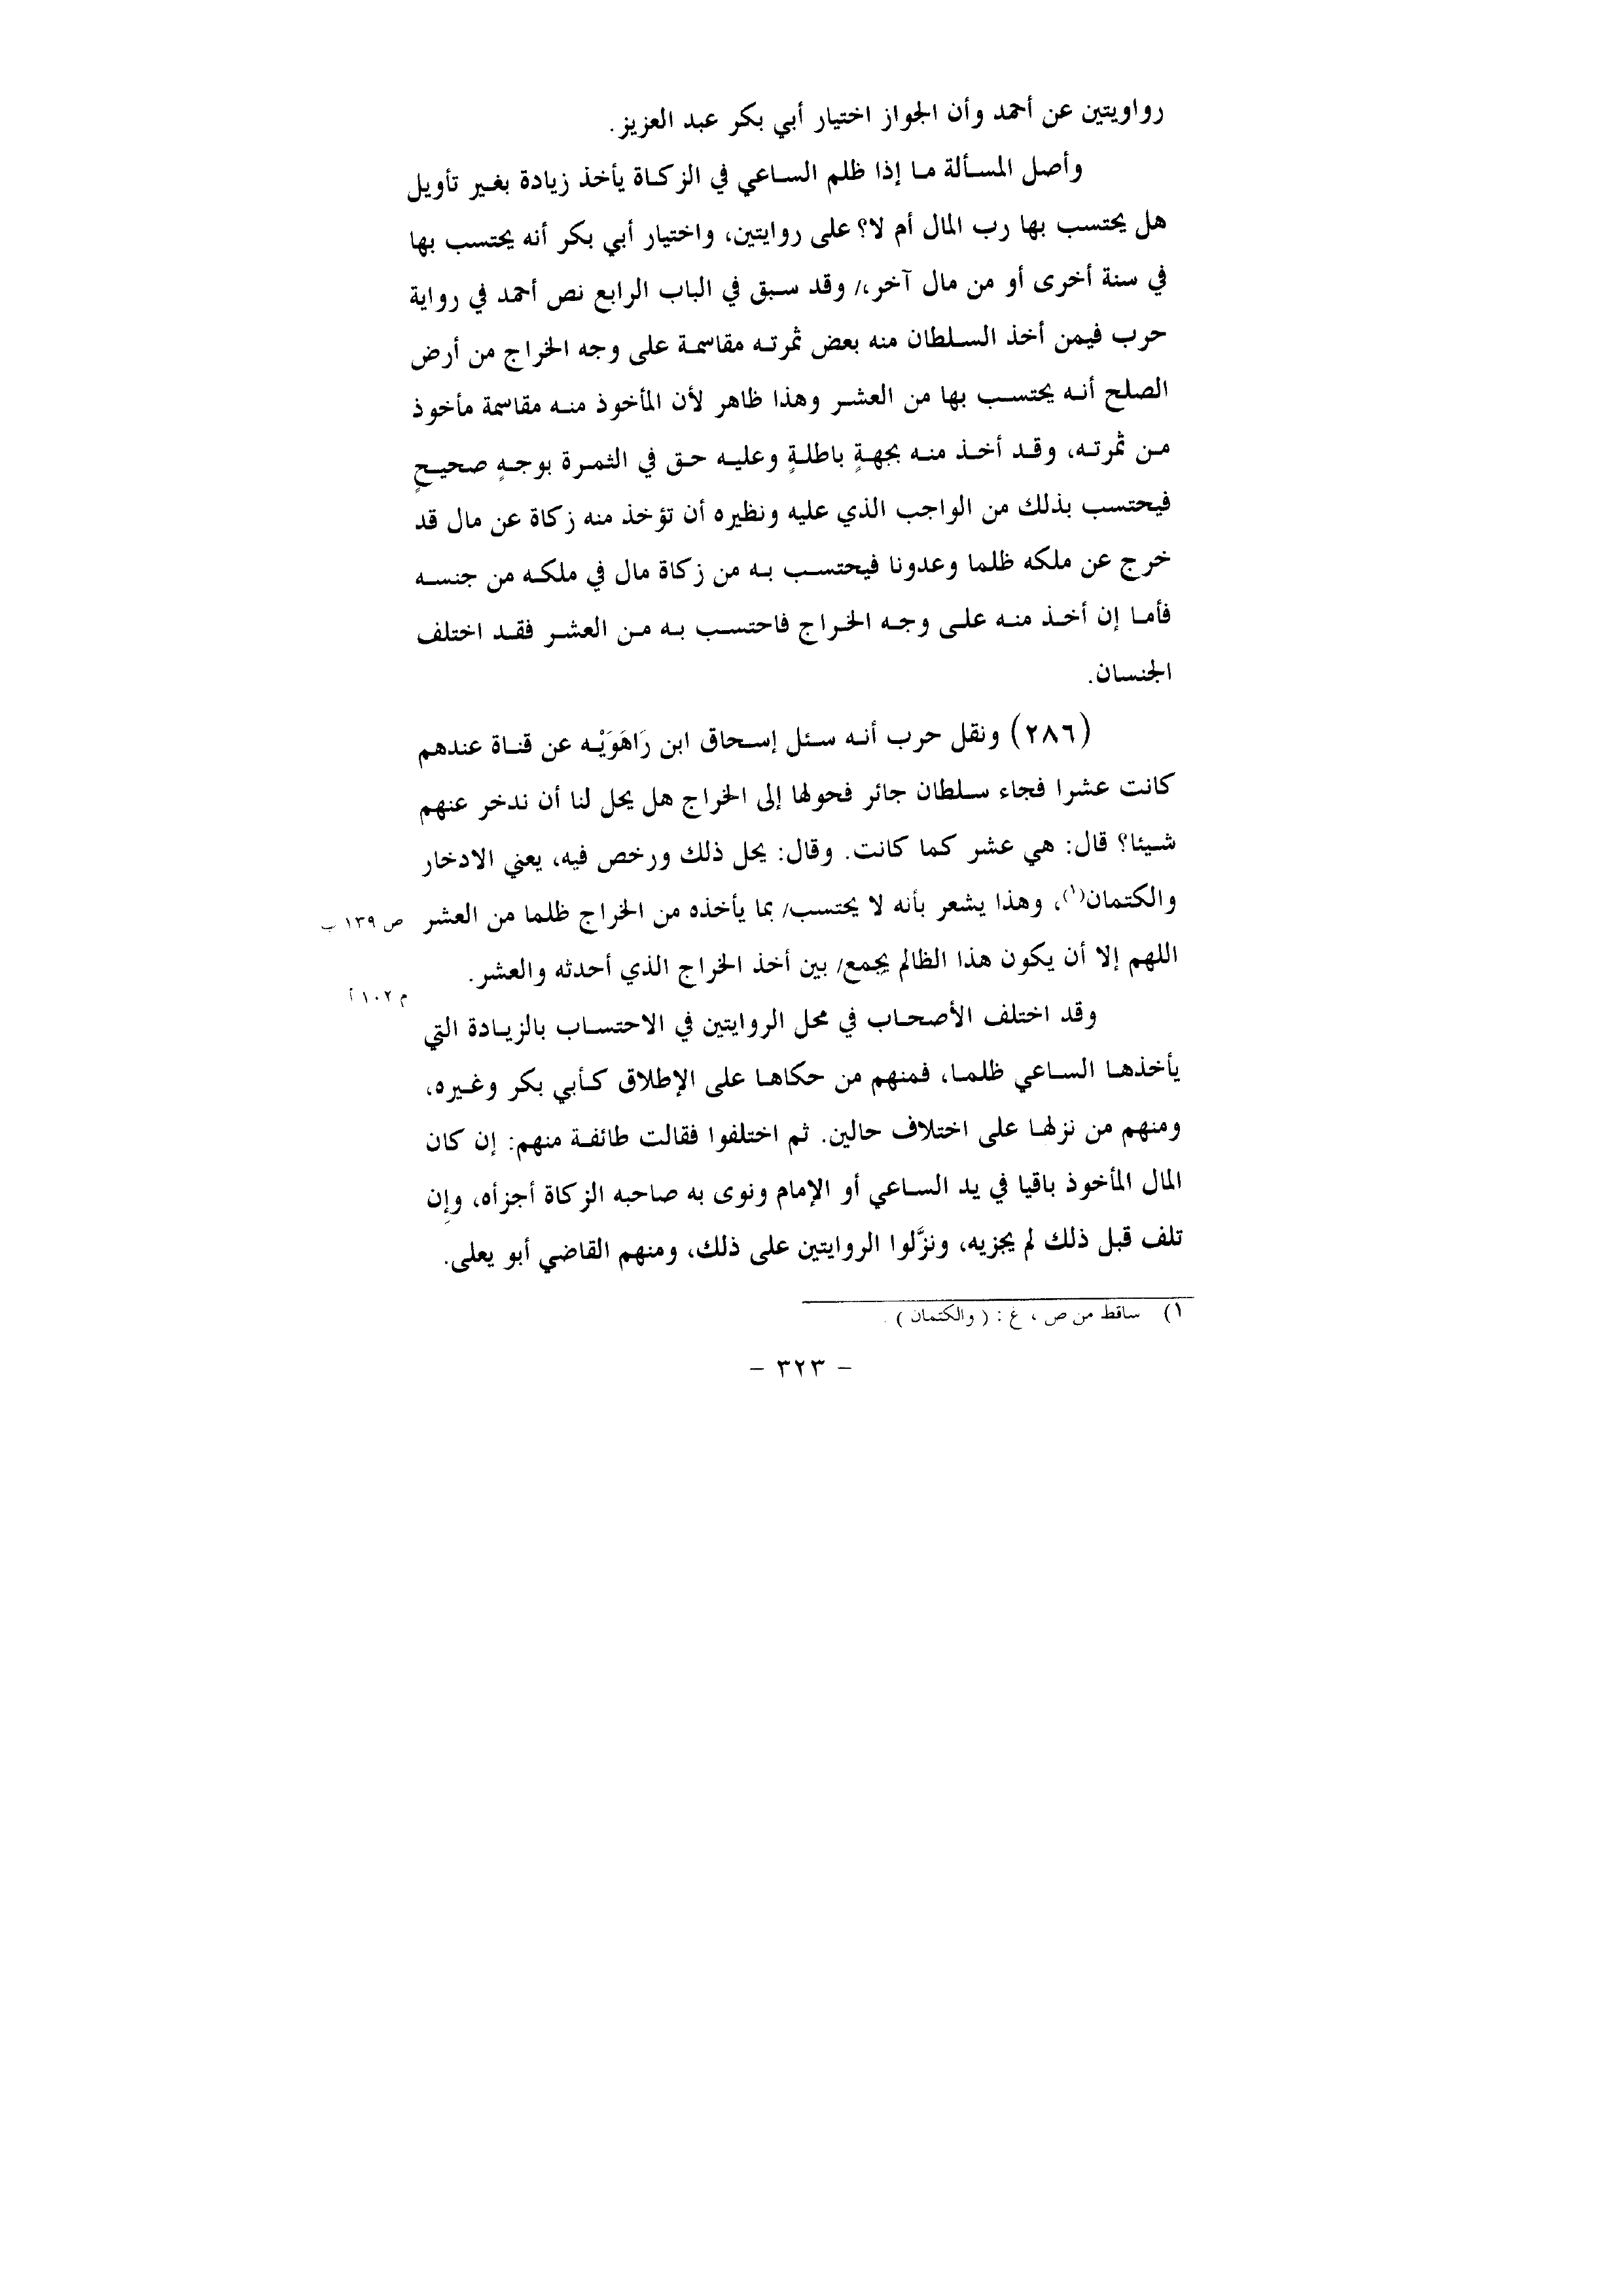 رواويتين عن أحمد وأن الجواز اختيار أبي بكر عبد العزيز.
وأصل المسألة ما إذا ظلم الساعي في الزكاة يأخذ زيادة بغير تأويل
هل يحتسب بها رب المال أم لا؟ على روايتين، واختيار أبي بكر أنه يحتسب بها
في سنة أخرى أو من مال آخر،/ وقد سبق في الباب الرابع نص أحمد في رواية
حرب فيمن أخذ السلطان منه بعض ثمرته مقاسمة على وجه الخراج من أرض
الصلح أنه يحتسب بها من العشر وهذا ظاهر لأن المأخوذ منه مقاسمة مأخوذ
من ثمرته، وقد أخذ منه بجهةٍ باطلةٍ وعليه حق في الثمرة بوجهٍ صحيحٍ
فيحتسب بذلك من الواجب الذي عليه ونظيره أن تؤخذ منه زكاة عن مال قد
خرج عن ملكه ظلما وعدونا فيحتسب به من زكاة مال في ملكه من جنسه
فأما إن أخذ منه على وجه الخراج فاحتسب به من العشر فقد اختلف
الجنسان.
(٢٨٦) ونقل حرب أنه سئل إسحاق ابن رَاهَوَيْه عن قناة عندهم
كانت عشرا فجاء سلطان جائر فحولها إلى الخراج هل يحل لنا أن ندخر عنهم
شيئا؟ قال: هي عشر كما كانت. وقال: يحل ذلك ورخص فيه، يعني الادخار
والكتمان(١)، وهذا يشعر بأنه لا يحتسب/ بما يأخذه من الخراج ظلما من العشر ص ١٣٩ ب
اللهم إلا أن يكون هذا الظالم يجمع/ بين أخذ الخراج الذي أحدثه والعشر.
م ١٠٢ أ
وقد اختلف الأصحاب في محل الروايتين في الاحتساب بالزيادة التي
يأخذها الساعي ظلما، فمنهم من حكاها على الإطلاق كأبي بكر وغيره،
ومنهم من نزلها على اختلاف حالين. ثم اختلفوا فقالت طائفة منهم: إن كان
المال المأخوذ باقيا في يد الساعي أو الإمام ونوى به صاحبه الزكاة أجزأه، وإِن
تلف قبل ذلك لم يجزيه، ونزَّلوا الروايتين على ذلك، ومنهم القاضي أبو يعلى.
١) ساقط من ص ، غ : ( والكتمان ) .
- ٣٢٣ -